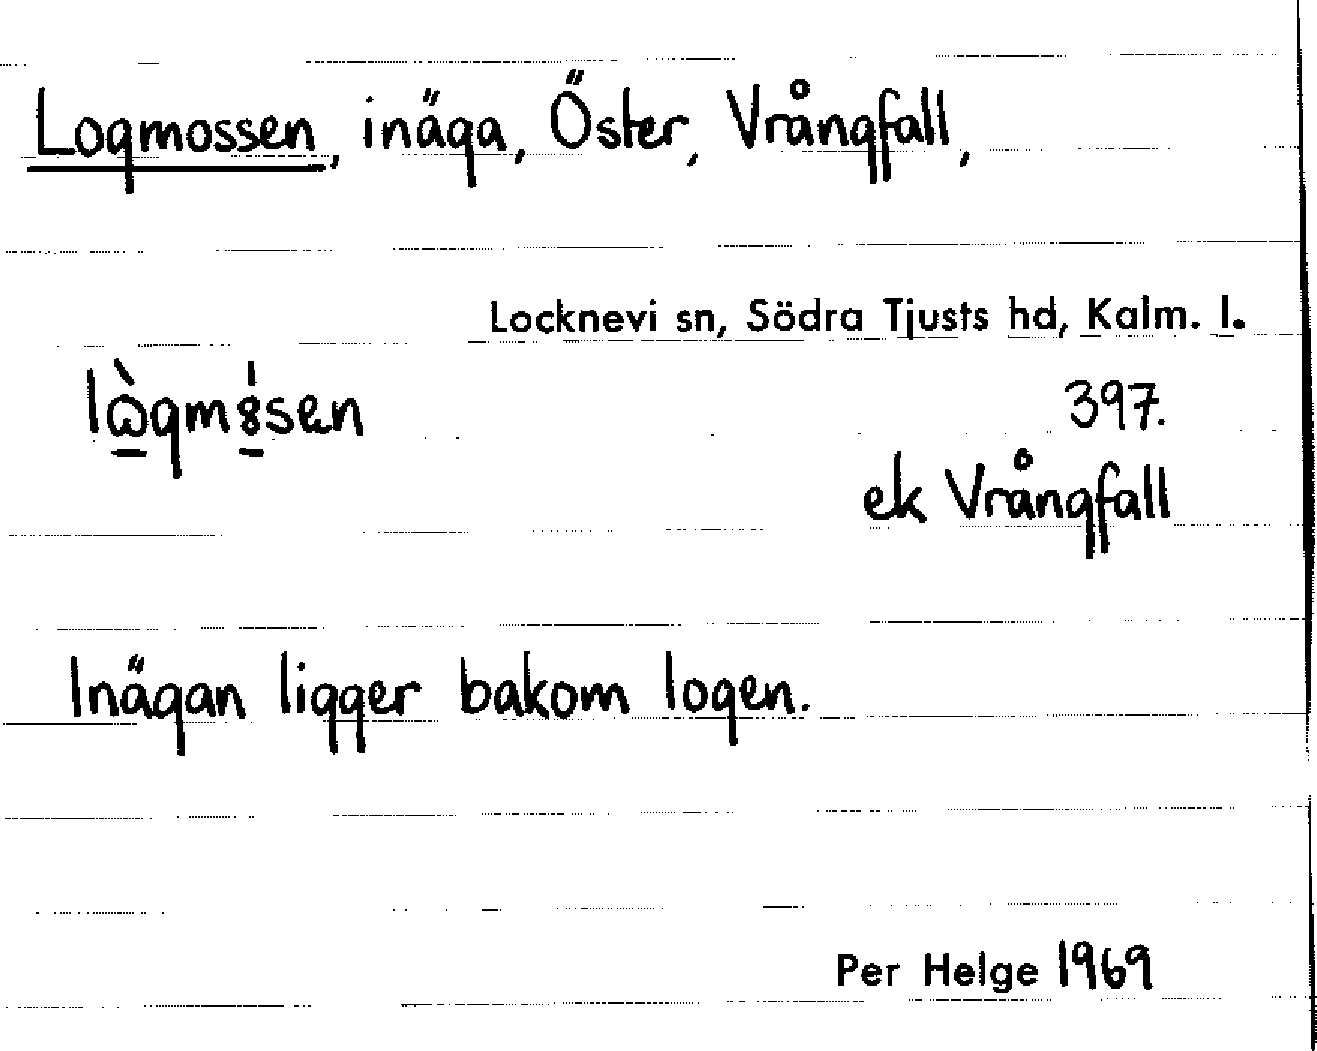 Logmossen, inäga, Öster, Vrångfall,
Locknevi sn, Södra Tjusts hd, Kalm. l.
397.
ek Vrångfall
Inägan ligger bakom logen.
Per Helge 1969